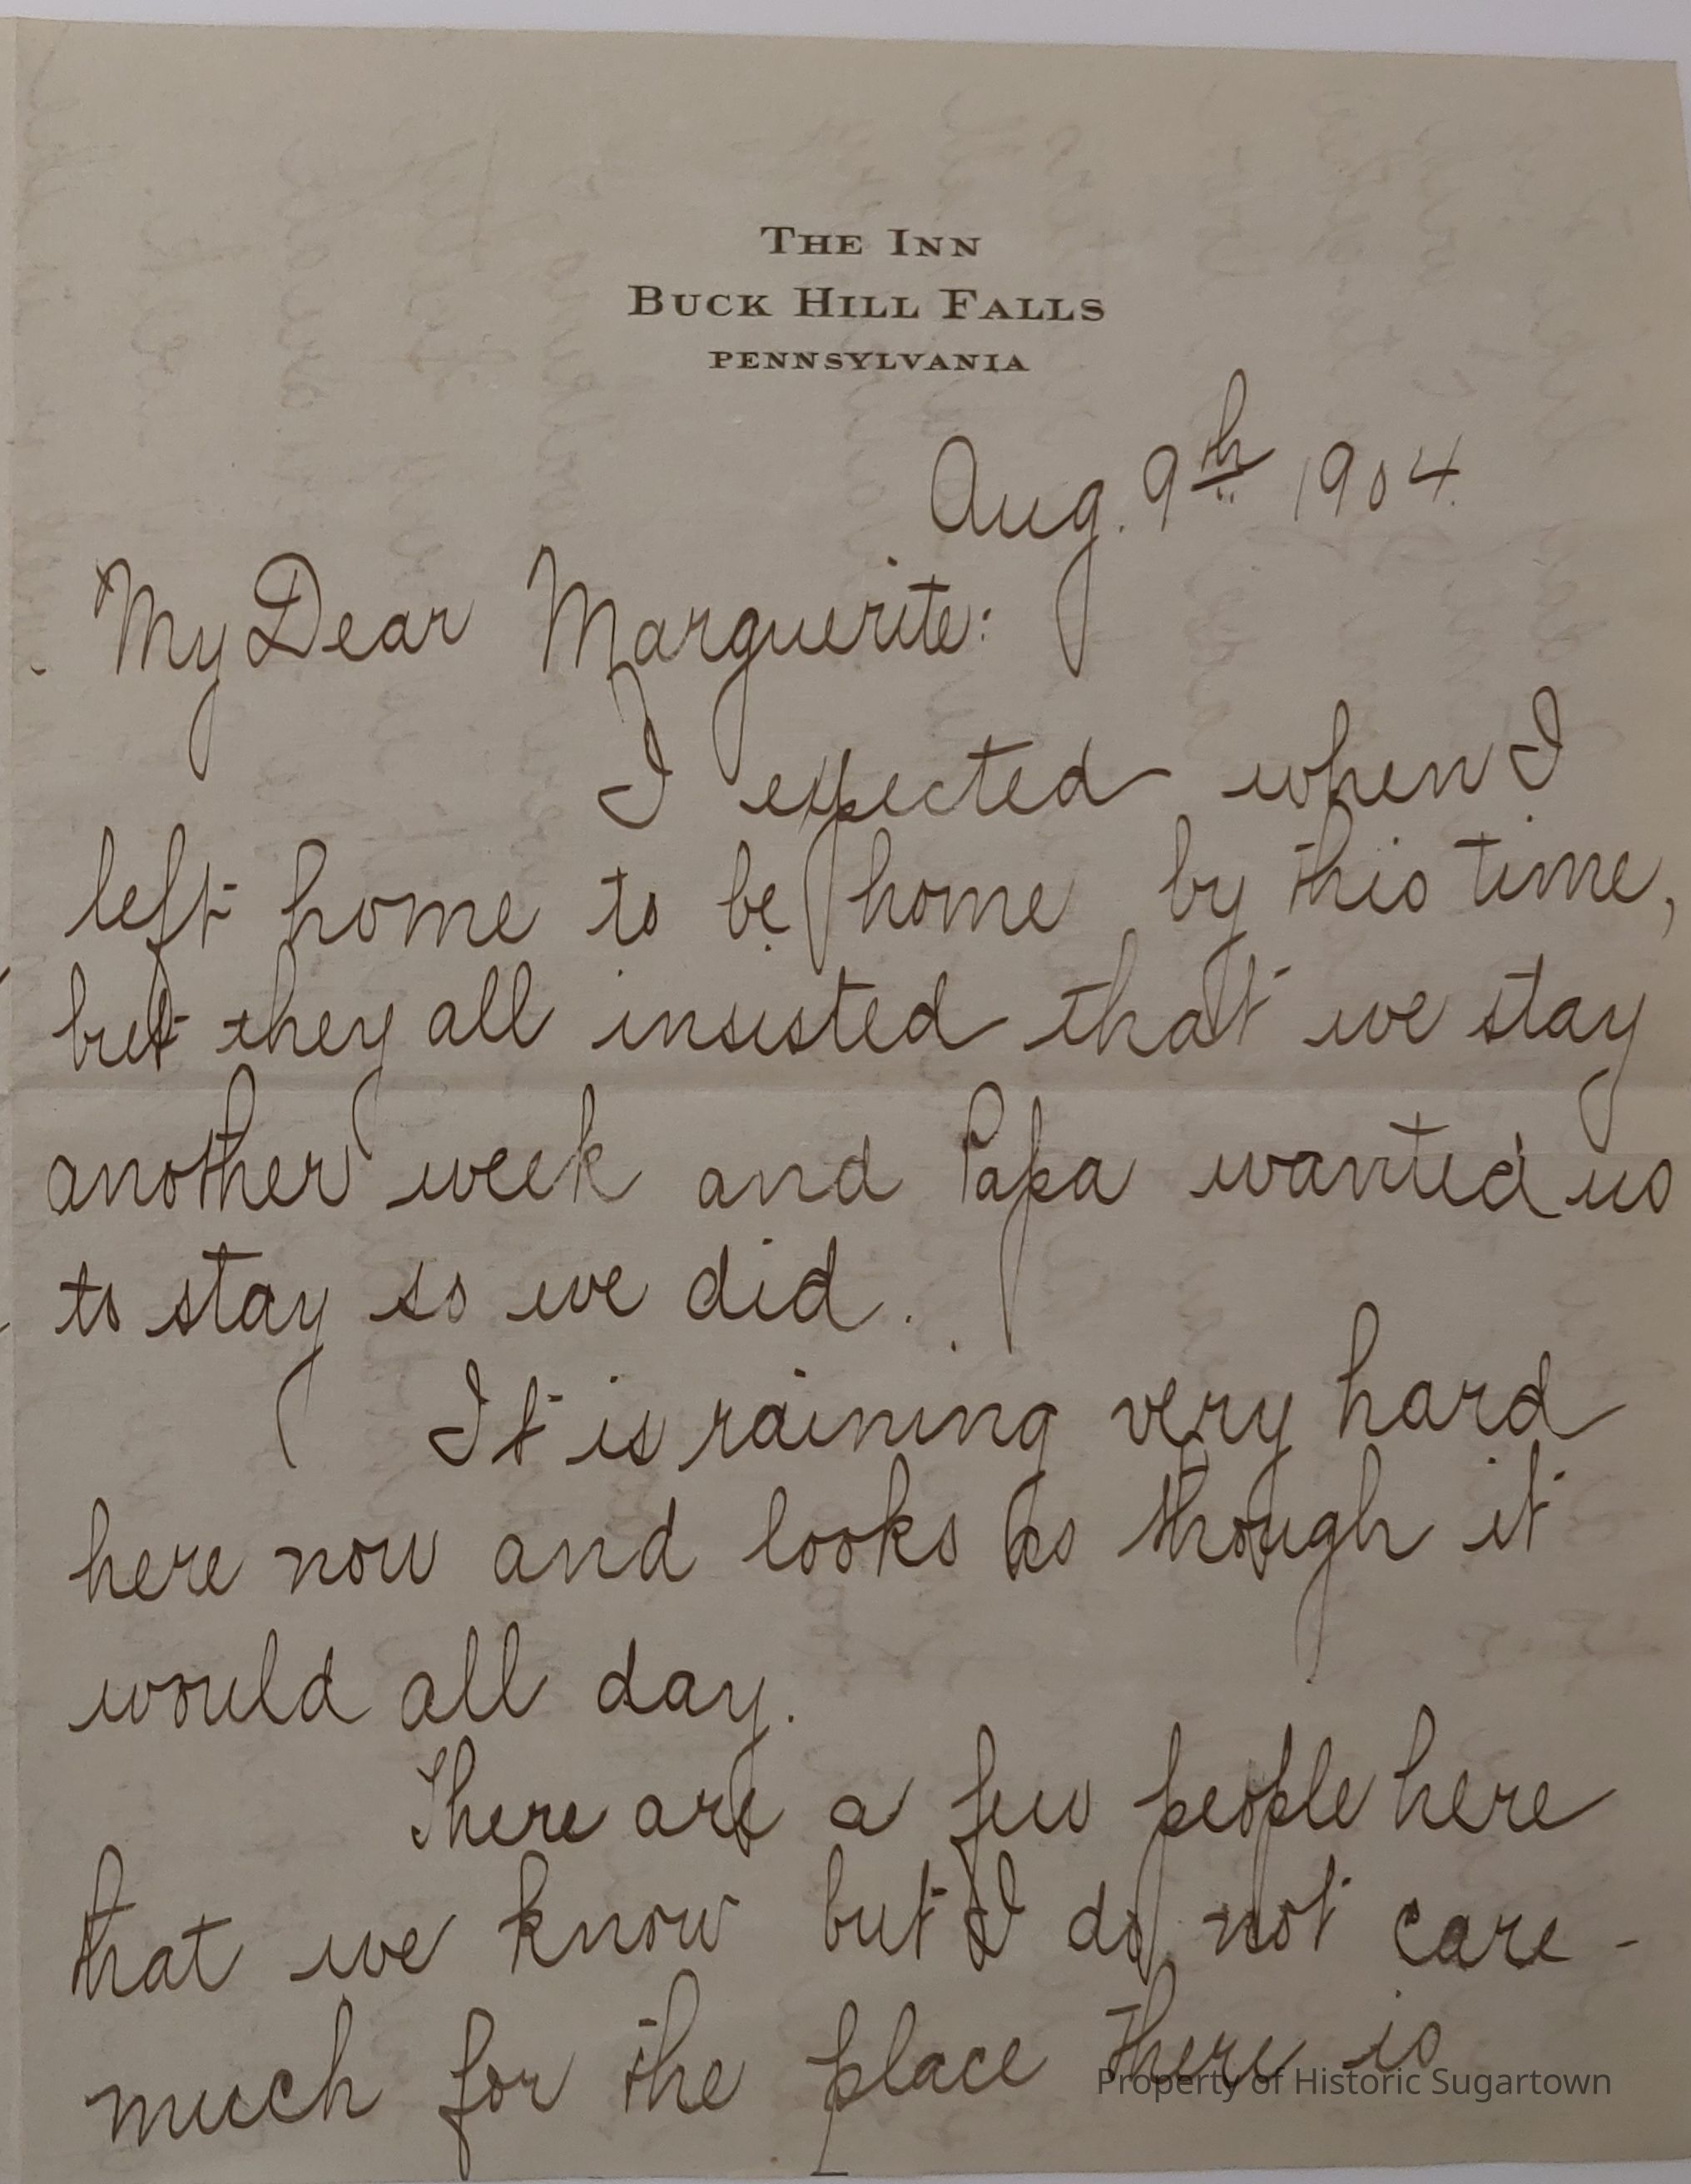 THE INN
BUCK HILL FALLS
PENNSYLVANIA
Aug. 9th 1904.
My Dear Marguerite:
I expected when I
left home to be home by this time,
but they all insisted that we stay
another week and Papa wanted us
to stay so we did.
It is raining very hard
here now and looks as though it
would all day.
There are a few people here
that we know but I do not care-
much for the place there is
Property of Historic Sugartown